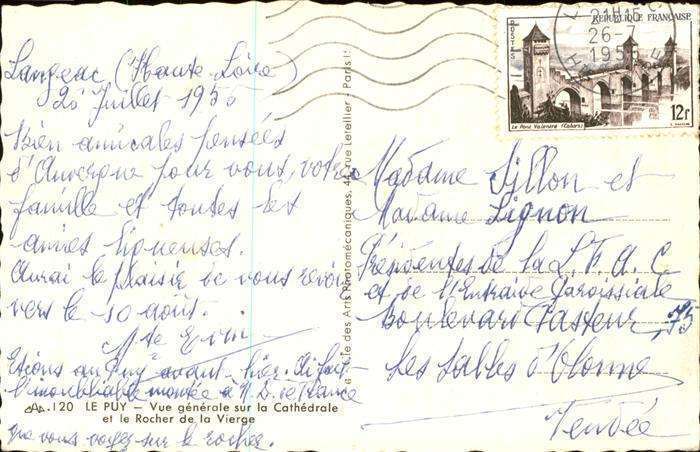 Langeac (Haute-Loire)
26 Juillet 1955
Bien amicales pensées
d'Auvergne pour vous, votre
famille et toutes les
amies ligueuses.
Aurai le plaisir de vous revoir
vers le 10 août.
Étions au Puy avant-hier. Ai fait
l'inoubliable montée à N. D. de France
que vous voyez sur le rocher.
120 LE PUY — Vue générale sur la Cathédrale
et le Rocher de la Vierge
Sté des Arts Photomécaniques, 44, rue Letellier - Paris
21H15
26-7
19
RÉPUBLIQUE FRANÇAISE
POSTES
Le Pont Valentré (Cahors)
12F
Madame Sillon et
Madame Lignon
Présidentes de la L. F. A. C
et de l'Entraide Paroissiale
Boulevard Pasteur, 75
Les Sables d'Olonne
Vendée